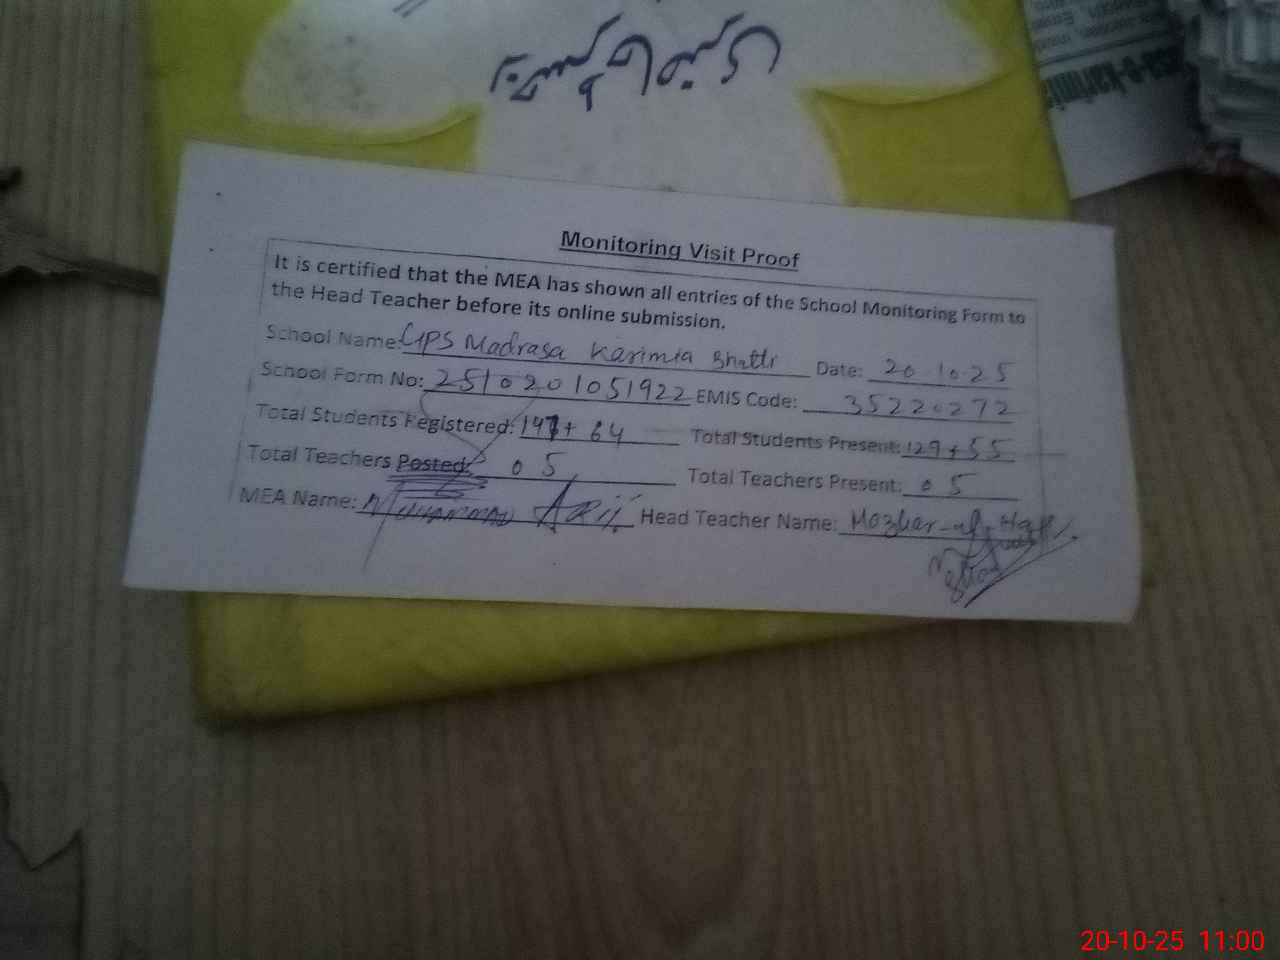 Monitoring Visit Proof
It is certified that the MEA has shown all entries of the School Monitoring Form to
the Head Teacher before its online submission.
School Name: GPS Madrasa Karimia Bhatti Date: 20.10.25
School Form No: 2510201051922 EMIS Code: 35220272
Total Students Registered: 147+ 64 Total Students Present: 129+55
Total Teachers Posted: 05 Total Teachers Present: 05
MEA Name: Muhammad Arif Head Teacher Name: Mazhar-ul-Haq
20-10-25 11:00